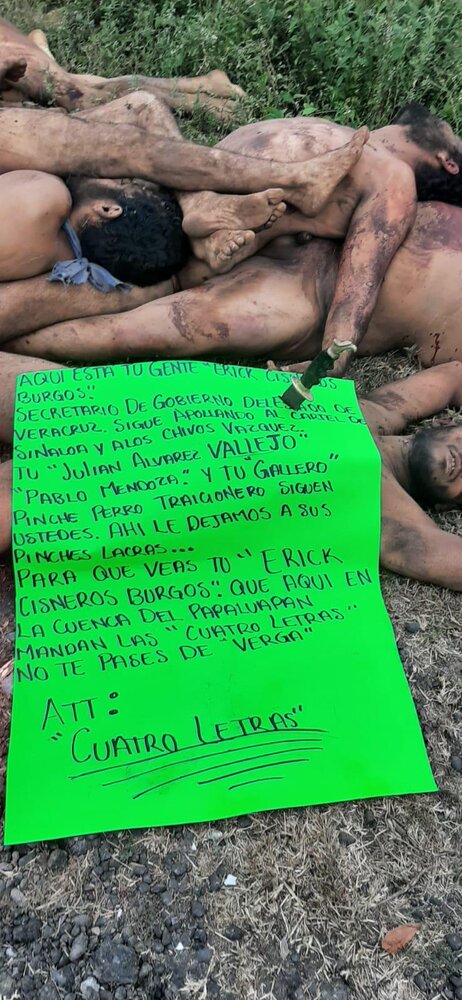 AQUI ESTA TU GENTE "ERICK CISNEROS
BURGOS".
SECRETARIO DE GOBIERNO DELEGADO DE
VERACRUZ. SIGUE APOLLANDO AL CARTEL DE
SINALOA Y ALOS CHIVOS VAZQUEZ.
TU "JULIAN ALVAREZ VALLEJO"
"PABLO MENDOZA" Y TU "GALLERO"
PINCHE PERRO TRAICIONERO SIGUEN
USTEDES. AHI LE DEJAMOS A SUS
PINCHES LACRAS...
PARA QUE VEAS TU "ERICK
CISNEROS BURGOS". QUE AQUI EN
LA CUENCA DEL PAPALUAPAN
MANDAN LAS "CUATRO LETRAS"
NO TE PASES DE "VERGA"
ATT:
"CUATRO LETRAS"